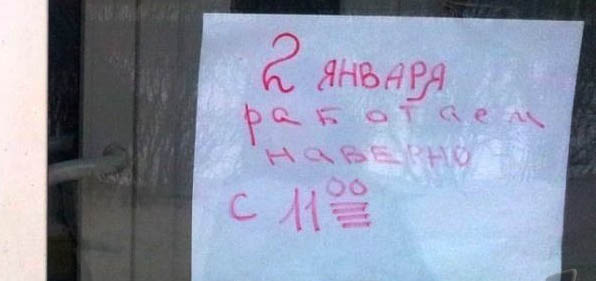 2 ЯНВАРЯ
работаем
НАВЕРНО
С 11 00